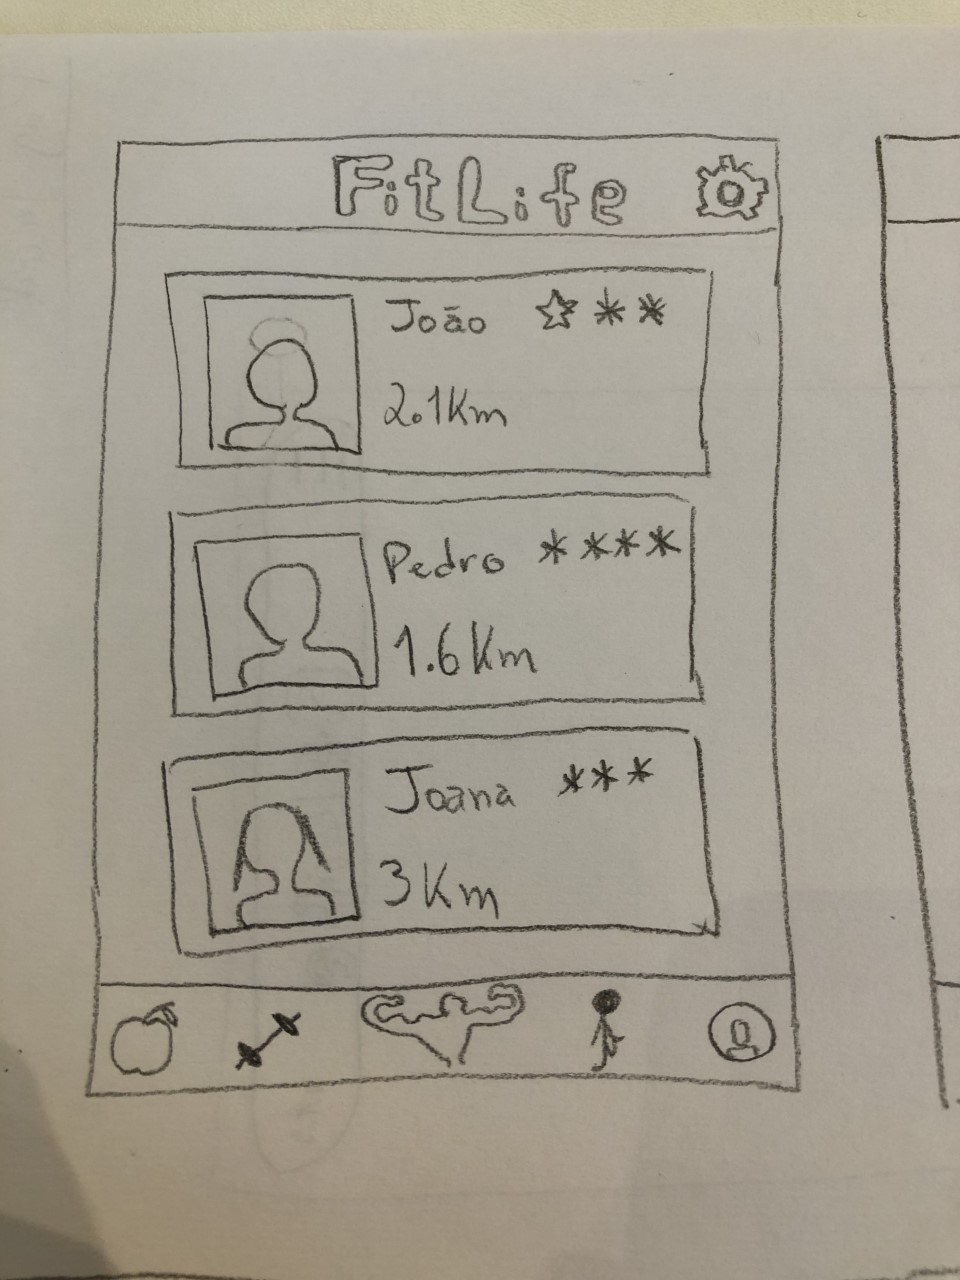 FitLife
João ☆**
2.1Km
Pedro ****
1.6Km
Joana ***
3Km